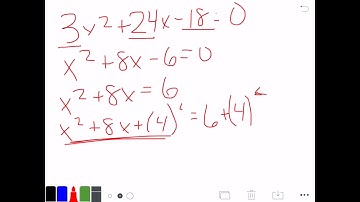 3x²+24x-18=0
x²+8x-6=0
x²+8x=6
x²+8x+(4)²=6+(4)²